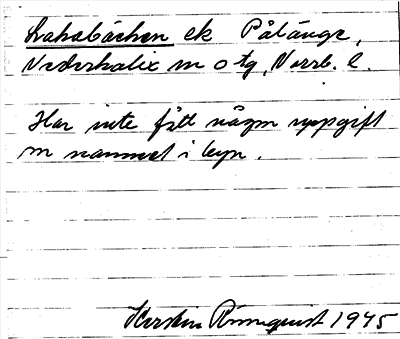 Lahabäcken ek Pålänge,
Nederkalix sn o tg, Norrb. l.
Har inte fått någon uppgift
om namnet i byn.
Kerstin Rönnquist 1945